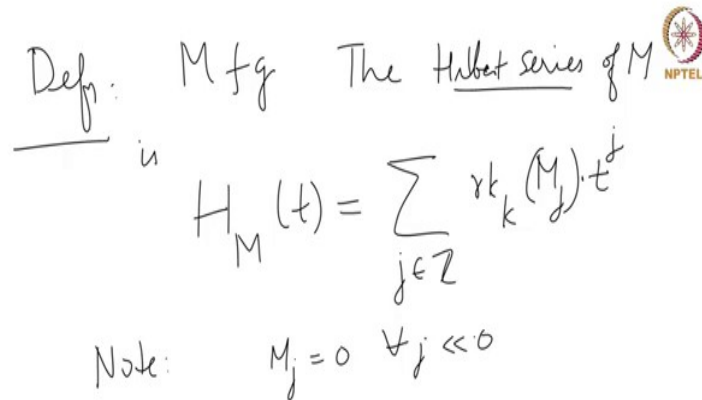 Defn: M fg The Hilbert series of M
is
H_M (t) = ∑_{j∈ℤ} rk_k (M_j)·t^j
Note: M_j = 0 ∀ j << 0
NPTEL